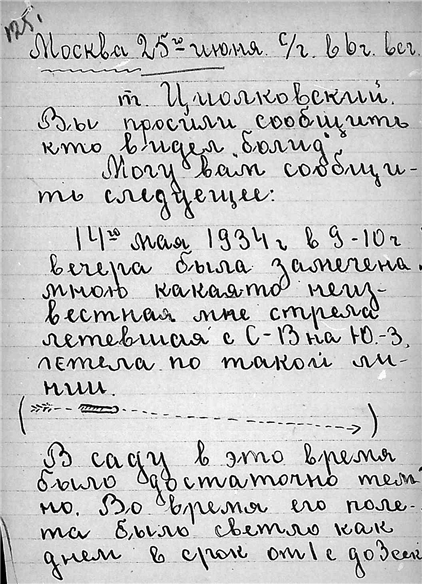 125.
Москва 25го июня с/г.
т. Циолковский.
Вы просили сообщить
кто видел болид
Могу вам сообщи-
ть следуещее:
14го мая 1934 г в 9-10 г
вечера была замечена
мною какаято неиз-
вестная мне стрела
летевшая с С-В на Ю.-З,
летела по такой ли-
нии.
( )
В саду в это время
было достаточно тем
но. Во время его поле-
та было светло как
днем в срок от 1 с до 3 сек